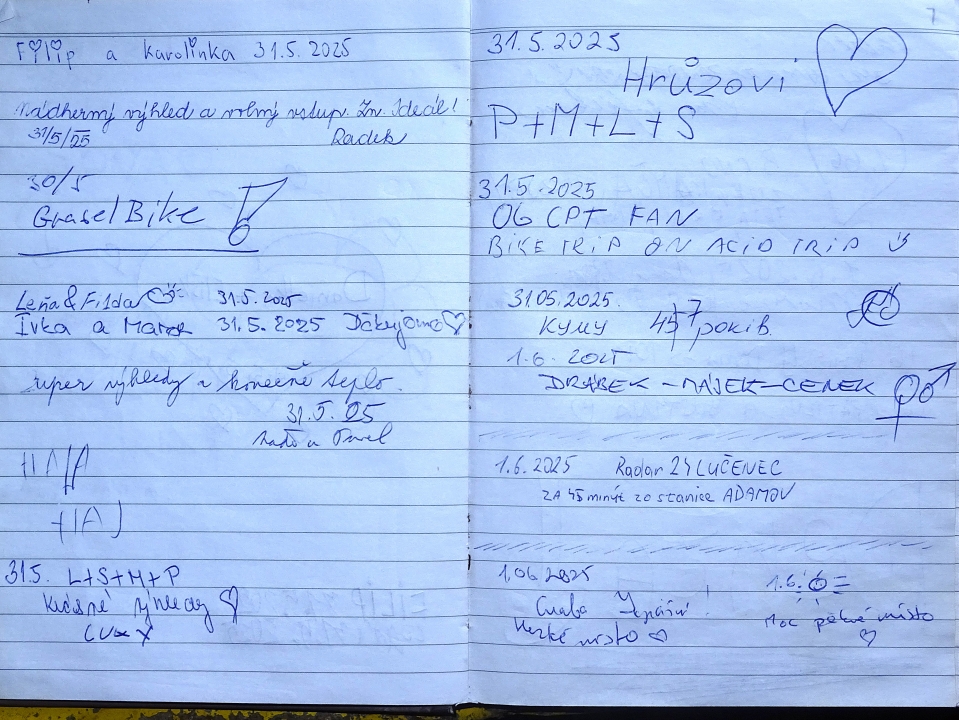 Filip a Karolínka 31.5.2025
Nádherný výhled a volný vstup. Zn. Ideál!
31/5/25 Radek
30/5
Grasel Bike
Leňa & Filda 31.5.2025
Ivka a Marek 31.5.2025 Děkujeme
super výhledy a konečně teplo.
31.5.25
a Pavel
31.5. L+S+M+P
Krásné výhledy
7
31.5.2025
Hrůzovi
P+M+L+S
31.5.2025
OG CPT FAN
BIKE TRIP ON ACID TRIP
31.05.2025.
КУМУ 457 років.
1.6. 2025
DRÁBEK - MÁJEK - CENEK
1.6.2025 Radar 24 LUČENEC
ZA 45 minút zo stanice ADAMOV
1.06.2025
Hezké místo
1.6.
Moc pěkné místo